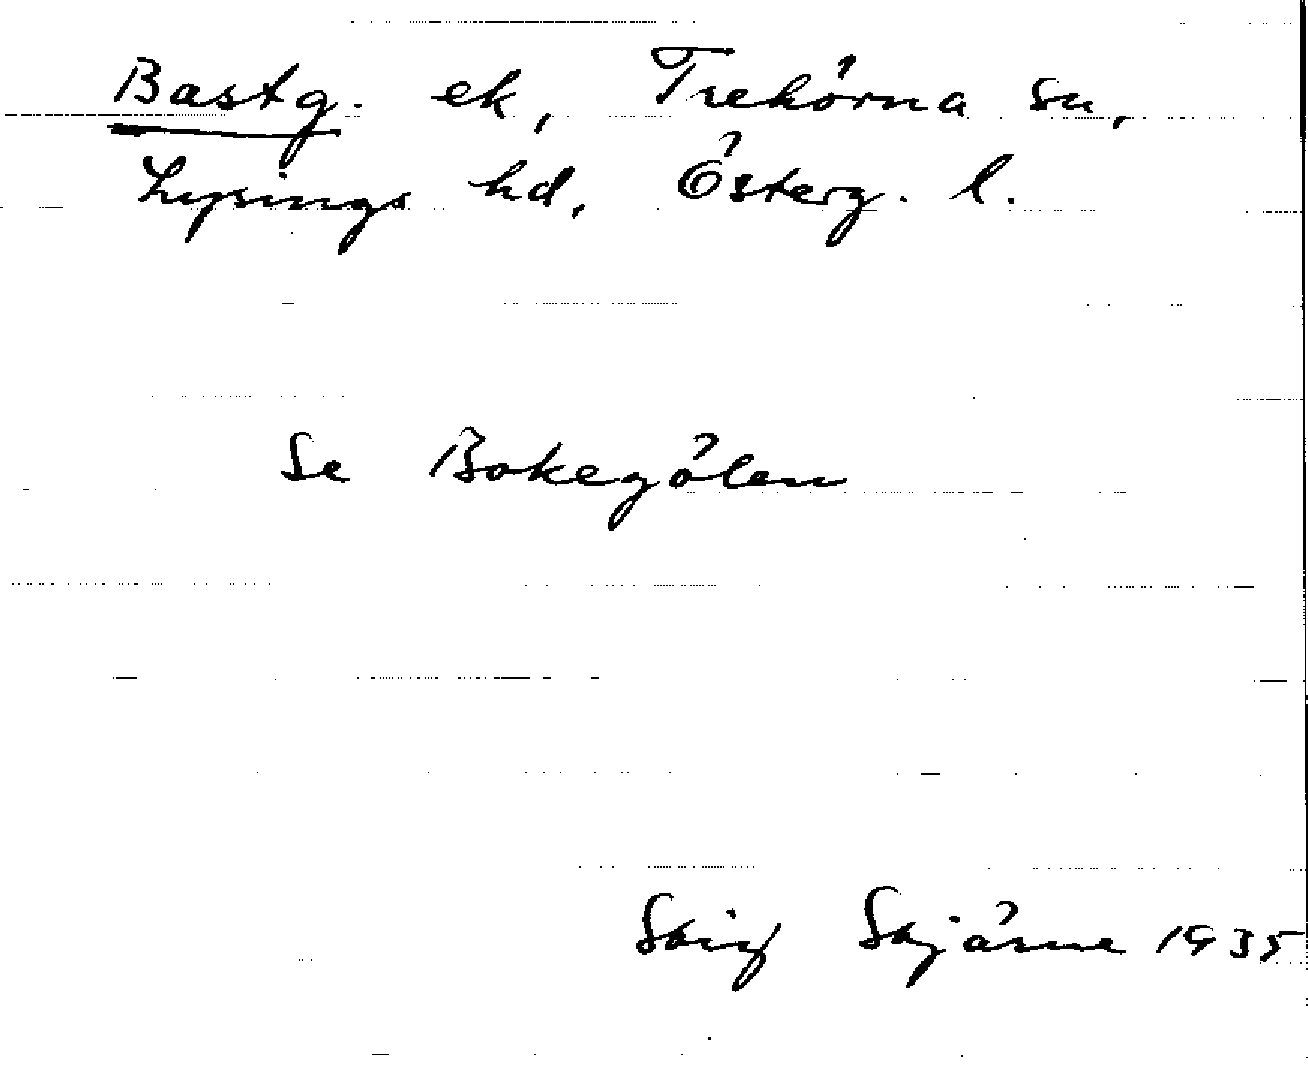 Bastg. ek, Trehörna sn,
Lysings hd, Österg. l.
Se Bokegölen
Stig Stjärne 1935